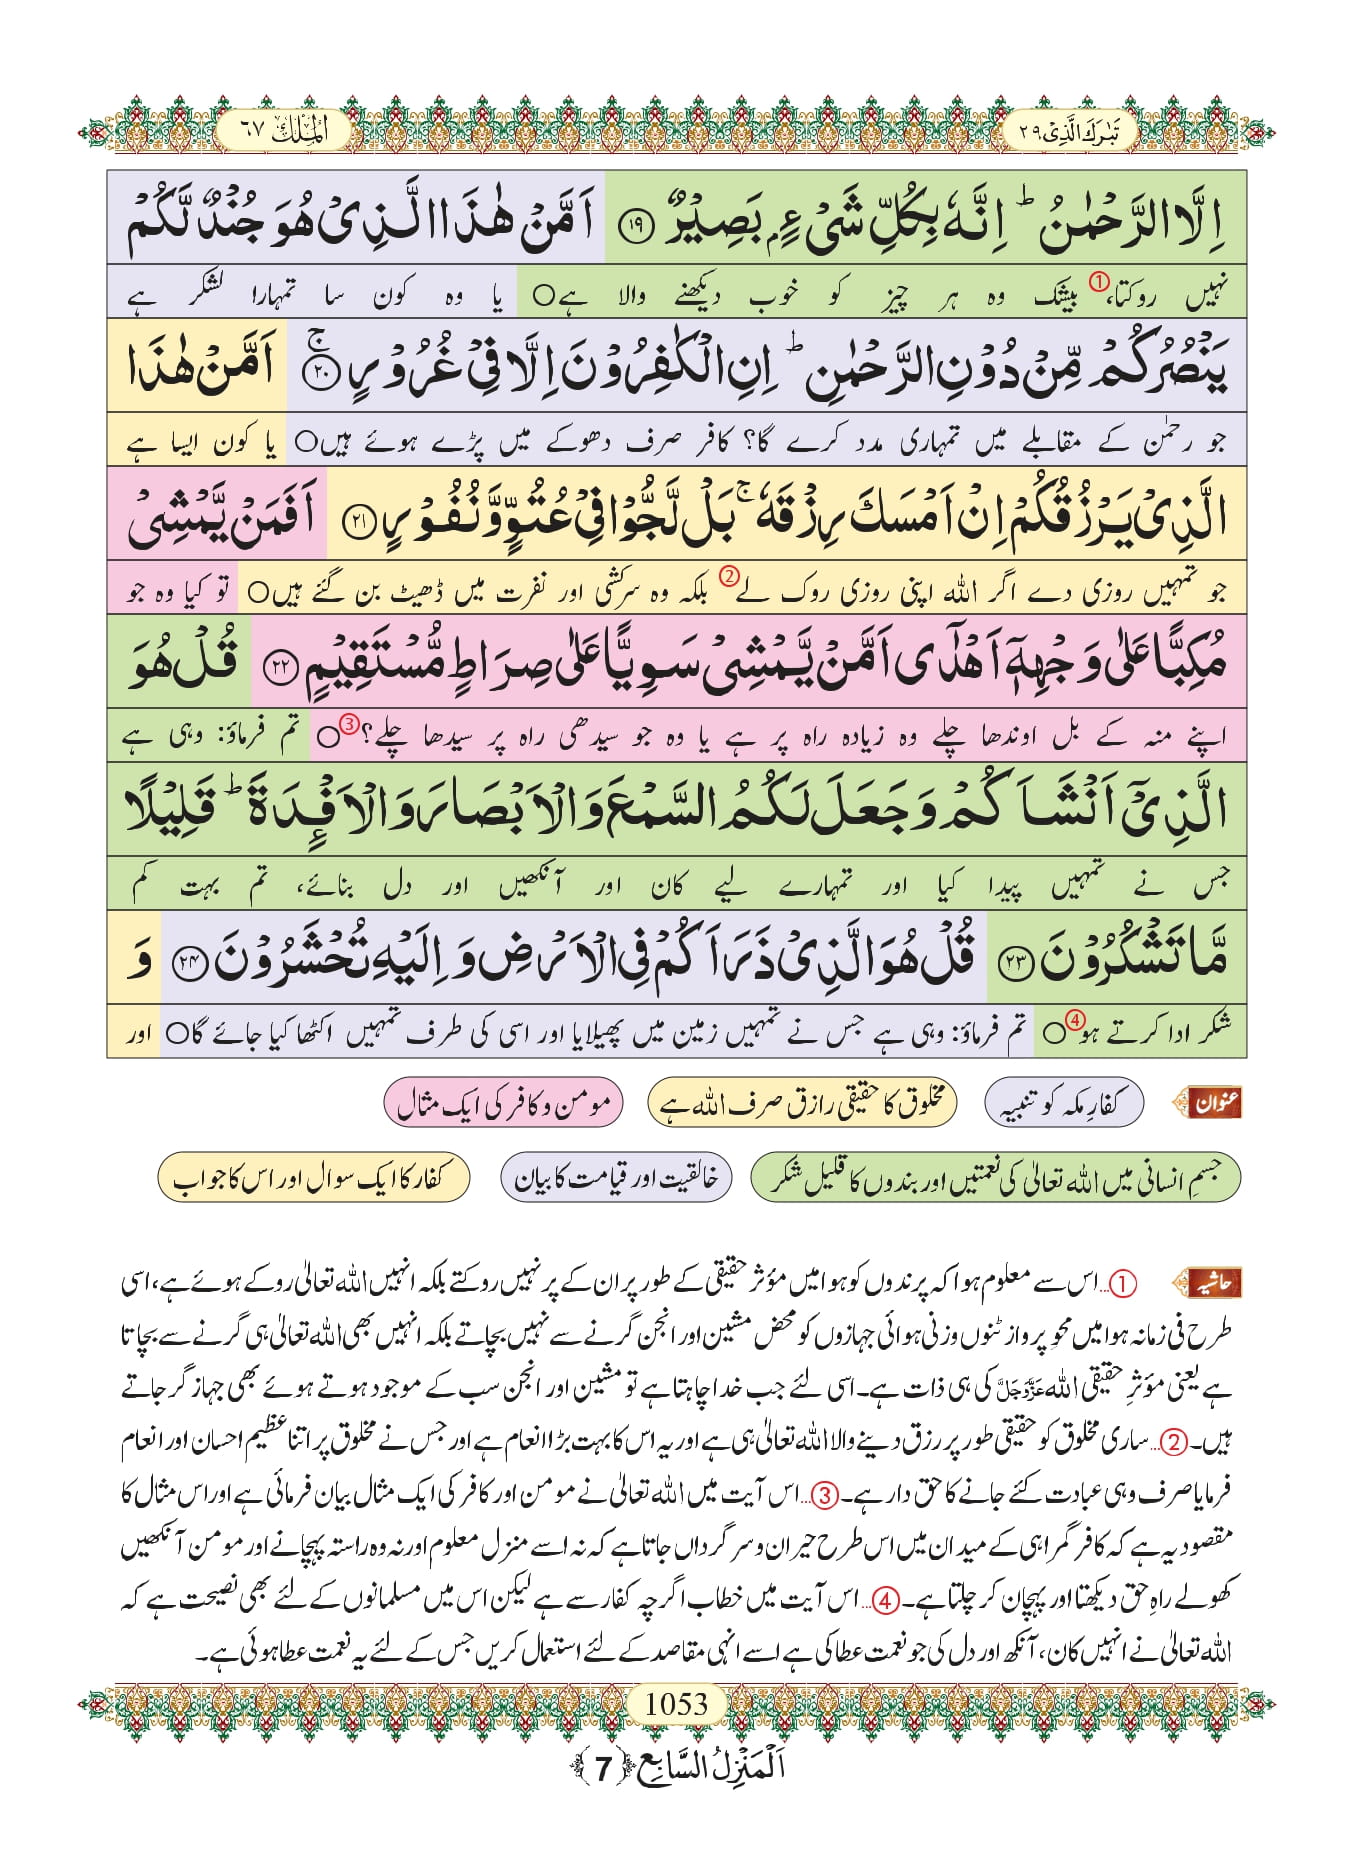 تَبٰرَكَ الَّذِیْ ۲۹
اَلْمُلْك ۶۷
اِلَّا الرَّحْمٰنُؕ اِنَّهٗ بِكُلِّ شَیْءٍۭ بَصِیْرٌ ۱۹ اَمَّنْ هٰذَا الَّذِیْ هُوَ جُنْدٌ لَّكُمْ
نہیں روکتا، 1 بیشک وہ ہر چیز کو خوب دیکھنے والا ہے○ یا وہ کون سا تمہارا لشکر ہے
یَنْصُرُكُمْ مِّنْ دُوْنِ الرَّحْمٰنِؕ اِنِ الْكٰفِرُوْنَ اِلَّا فِیْ غُرُوْرٍۚ ۲۰ اَمَّنْ هٰذَا
جو رحمٰن کے مقابلے میں تمہاری مدد کرے گا؟ کافر صرف دھوکے میں پڑے ہوئے ہیں○ یا کون ایسا ہے
الَّذِیْ یَرْزُقُكُمْ اِنْ اَمْسَكَ رِزْقَهٗۚ بَلْ لَّجُّوْا فِیْ عُتُوٍّ وَّ نُفُوْرٍ ۲۱ اَفَمَنْ یَّمْشِیْ
جو تمہیں روزی دے اگر اللہ اپنی روزی روک لے 2 بلکہ وہ سرکشی اور نفرت میں ڈھیٹ بن گئے ہیں○ تو کیا وہ جو
مُكِبًّا عَلٰى وَجْهِهٖۤ اَهْدٰۤى اَمَّنْ یَّمْشِیْ سَوِیًّا عَلٰى صِرَاطٍ مُّسْتَقِیْمٍ ۲۲ قُلْ هُوَ
اپنے منہ کے بل اوندھا چلے وہ زیادہ راہ پر ہے یا وہ جو سیدھی راہ پر سیدھا چلے؟ 3 ○ تم فرماؤ: وہی ہے
الَّذِیْۤ اَنْشَاَكُمْ وَ جَعَلَ لَكُمُ السَّمْعَ وَ الْاَبْصَارَ وَ الْاَفْـِٕدَةَؕ قَلِیْلًا
جس نے تمہیں پیدا کیا اور تمہارے لیے کان اور آنکھیں اور دل بنائے، تم بہت کم
مَّا تَشْكُرُوْنَ ۲۳ قُلْ هُوَ الَّذِیْ ذَرَاَكُمْ فِی الْاَرْضِ وَ اِلَیْهِ تُحْشَرُوْنَ ۲۴ وَ
شکر ادا کرتے ہو 4 ○ تم فرماؤ: وہی ہے جس نے تمہیں زمین میں پھیلایا اور اسی کی طرف تمہیں اکٹھا کیا جائے گا○ اور
عنوان کفارِ مکہ کو تنبیہ مخلوق کا حقیقی رازق صرف اللہ ہے مومن و کافر کی ایک مثال
جسمِ انسانی میں اللہ تعالیٰ کی نعمتیں اور بندوں کا قلیل شکر خالقیت اور قیامت کا بیان کفار کا ایک سوال اور اس کا جواب
حاشیہ 1... اس سے معلوم ہوا کہ پرندوں کو ہوا میں مؤثر حقیقی کے طور پر ان کے پر نہیں روکتے بلکہ انہیں اللہ تعالیٰ روکے ہوئے ہے، اسی
طرح فی زمانہ ہوا میں محوِ پرواز ٹنوں وزنی ہوائی جہازوں کو محض مشین اور انجن گرنے سے نہیں بچاتے بلکہ انہیں بھی اللہ تعالیٰ ہی گرنے سے بچاتا
ہے یعنی مؤثرِ حقیقی اللہ عَزَّوَجَلَّ کی ہی ذات ہے۔ اسی لئے جب خدا چاہتا ہے تو مشین اور انجن سب کے موجود ہوتے ہوئے بھی جہاز گر جاتے
ہیں۔ 2... ساری مخلوق کو حقیقی طور پر رزق دینے والا اللہ تعالیٰ ہی ہے اور یہ اس کا بہت بڑا انعام ہے اور جس نے مخلوق پر اتنا عظیم احسان اور انعام
فرمایا صرف وہی عبادت کئے جانے کا حق دار ہے۔ 3... اس آیت میں اللہ تعالیٰ نے مومن اور کافر کی ایک مثال بیان فرمائی ہے اور اس مثال کا
مقصود یہ ہے کہ کافر گمراہی کے میدان میں اس طرح حیران و سرگرداں جاتا ہے کہ نہ اسے منزل معلوم اور نہ وہ راستہ پہچانے اور مومن آنکھیں
کھولے راہِ حق دیکھتا اور پہچان کر چلتا ہے۔ 4... اس آیت میں خطاب اگرچہ کفار سے ہے لیکن اس میں مسلمانوں کے لئے بھی نصیحت ہے کہ
اللہ تعالیٰ نے انہیں کان، آنکھ اور دل کی جو نعمت عطا کی ہے اسے انہی مقاصد کے لئے استعمال کریں جس کے لئے یہ نعمت عطا ہوئی ہے۔
1053
اَلْمَنْزِلُ السَّابِع ﴿7﴾